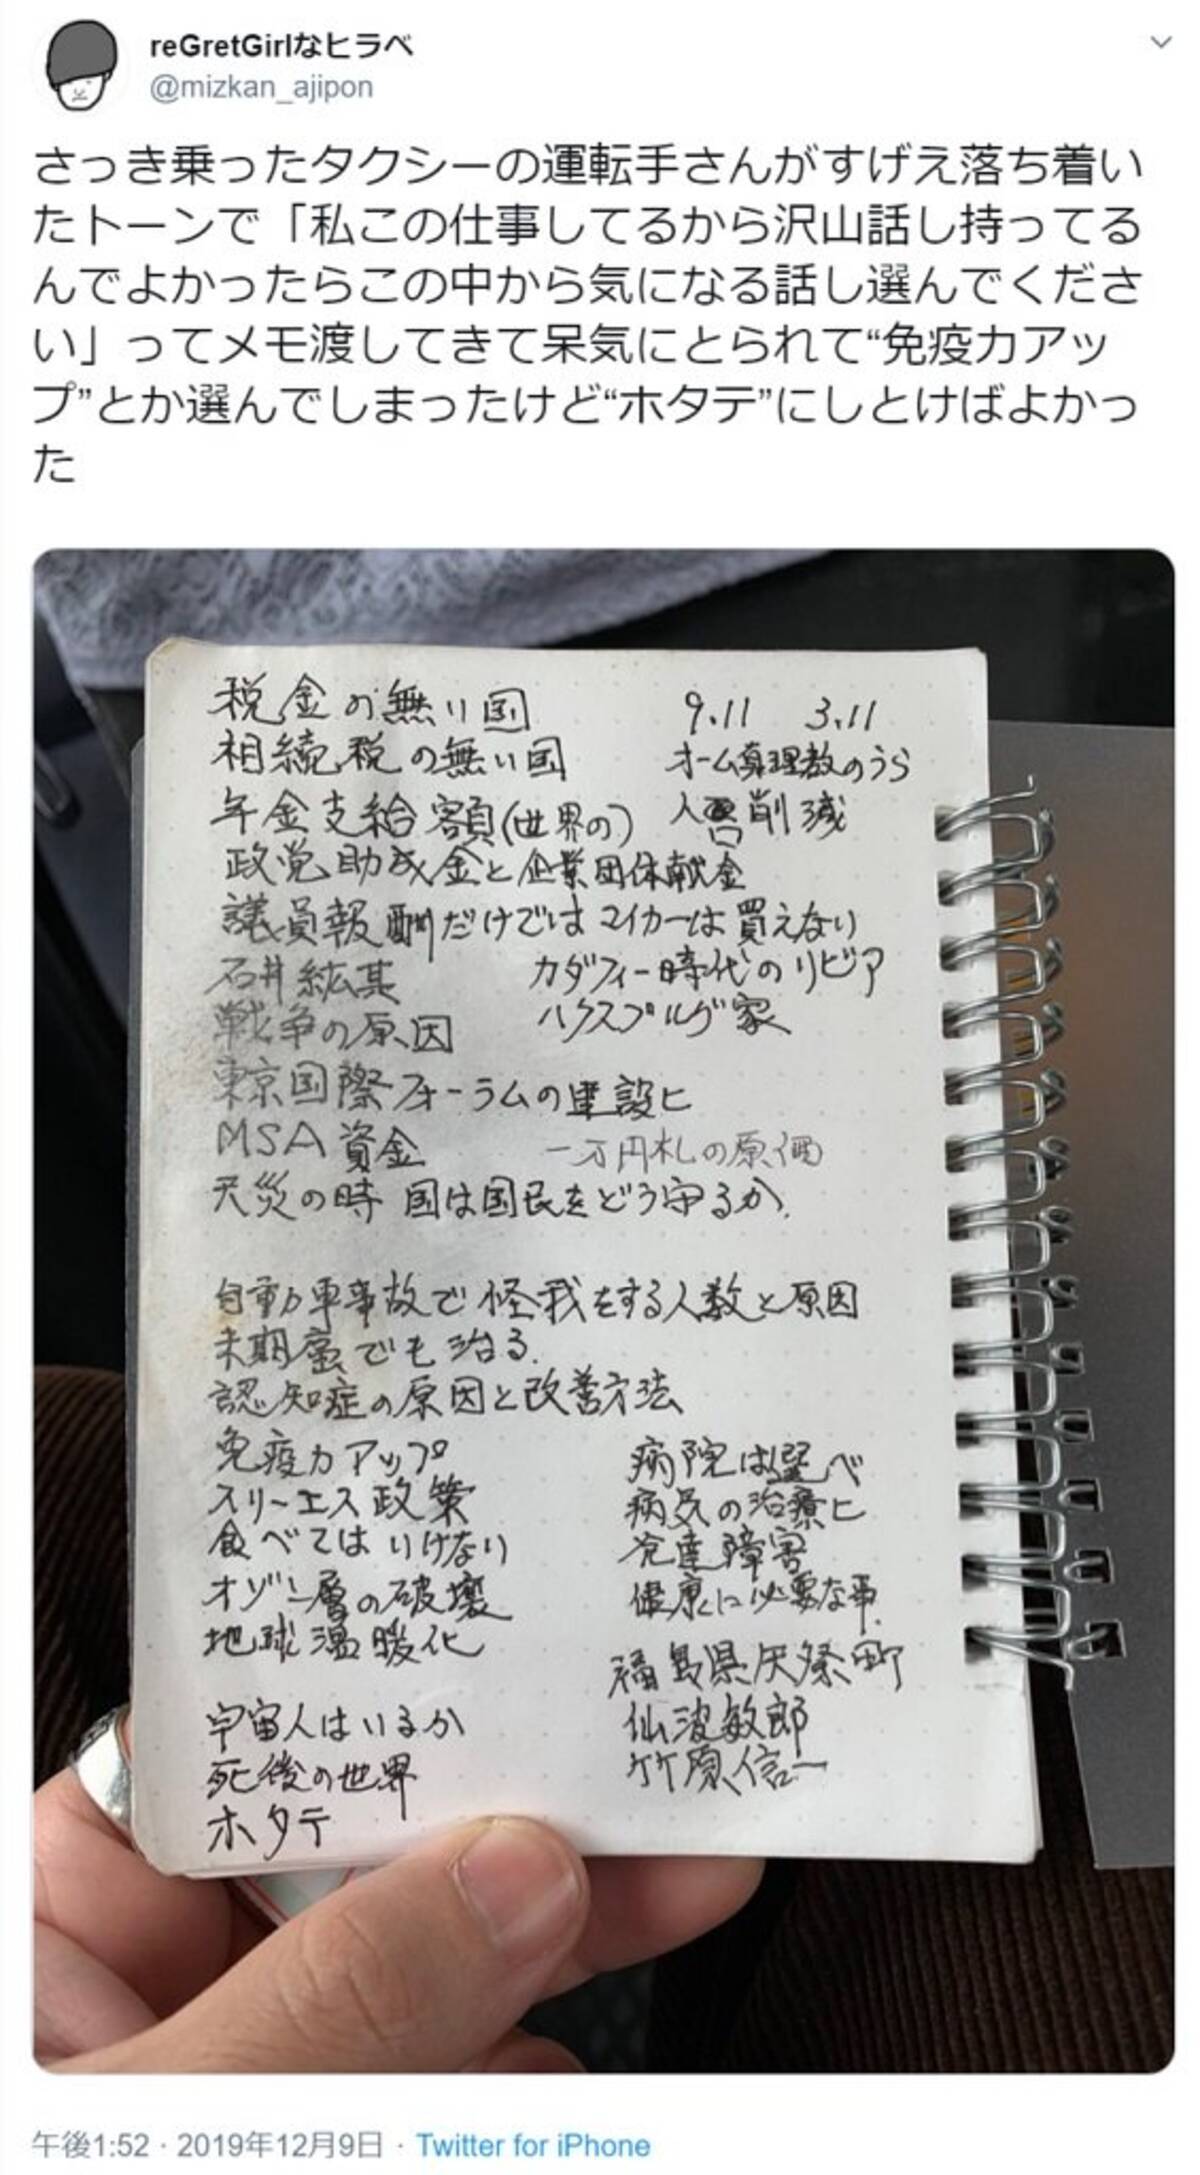 reGretGirlなヒラベ
@mizkan_ajipon
さっき乗ったタクシーの運転手さんがすげえ落ち着い
たトーンで「私この仕事してるから沢山話し持ってる
んでよかったらこの中から気になる話し選んでくださ
い」ってメモ渡してきて呆気にとられて“免疫力アッ
プ”とか選んでしまったけど“ホタテ”にしとけばよかっ
た
税金の無い国 9.11 3.11
相続税の無い国 オーム真理教のうら
年金支給額(世界の) 人口削減
政党助成金と企業団体献金
議員報酬だけではマイカーは買えない
石井紘基 カダフィー時代のリビア
戦争の原因 ハクスブルグ家
東京国際フォーラムの建設ヒ
MSA資金 一万円札の原価
天災の時 国は国民をどう守るか.
自動車事故で怪我をする人数と原因
末期癌でも治る.
認知症の原因と改善方法
免疫力アップ 病院は選べ
スリーエス政策 病気の治療ヒ
食べてはいけない 発達障害
オゾン層の破壊 健康に必要な事.
地球温暖化 福島県矢祭町
宇宙人はいるか 仙波敏郎
死後の世界 竹原信一
ホタテ
午後1:52 · 2019年12月9日 · Twitter for iPhone